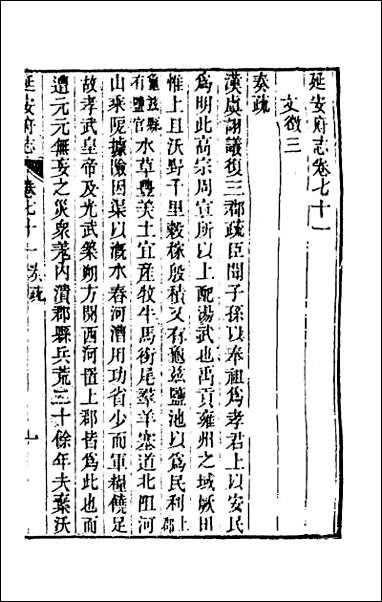 延安府志卷七十一
文徵三
奏疏
漢虞詡議復三郡疏臣聞子孫以奉祖爲孝君上以安民
爲明此高宗周宣所以上配湯武也禹貢雍州之域厥田
惟上且沃野千里穀稼殷積又有龜茲鹽池以爲民利上郡
龜茲縣有鹽官水草豐美土宜産牧牛馬銜尾羣羊塞道北阻河
山乘阨據險因渠以溉水舂河漕用功省少而軍糧饒足
故孝武皇帝及光武築朔方開西河置上郡皆爲此也而
遭元元無妄之災衆羌內潰郡縣兵荒二十餘年夫棄沃
延安府志 卷七十一 奏疏 一